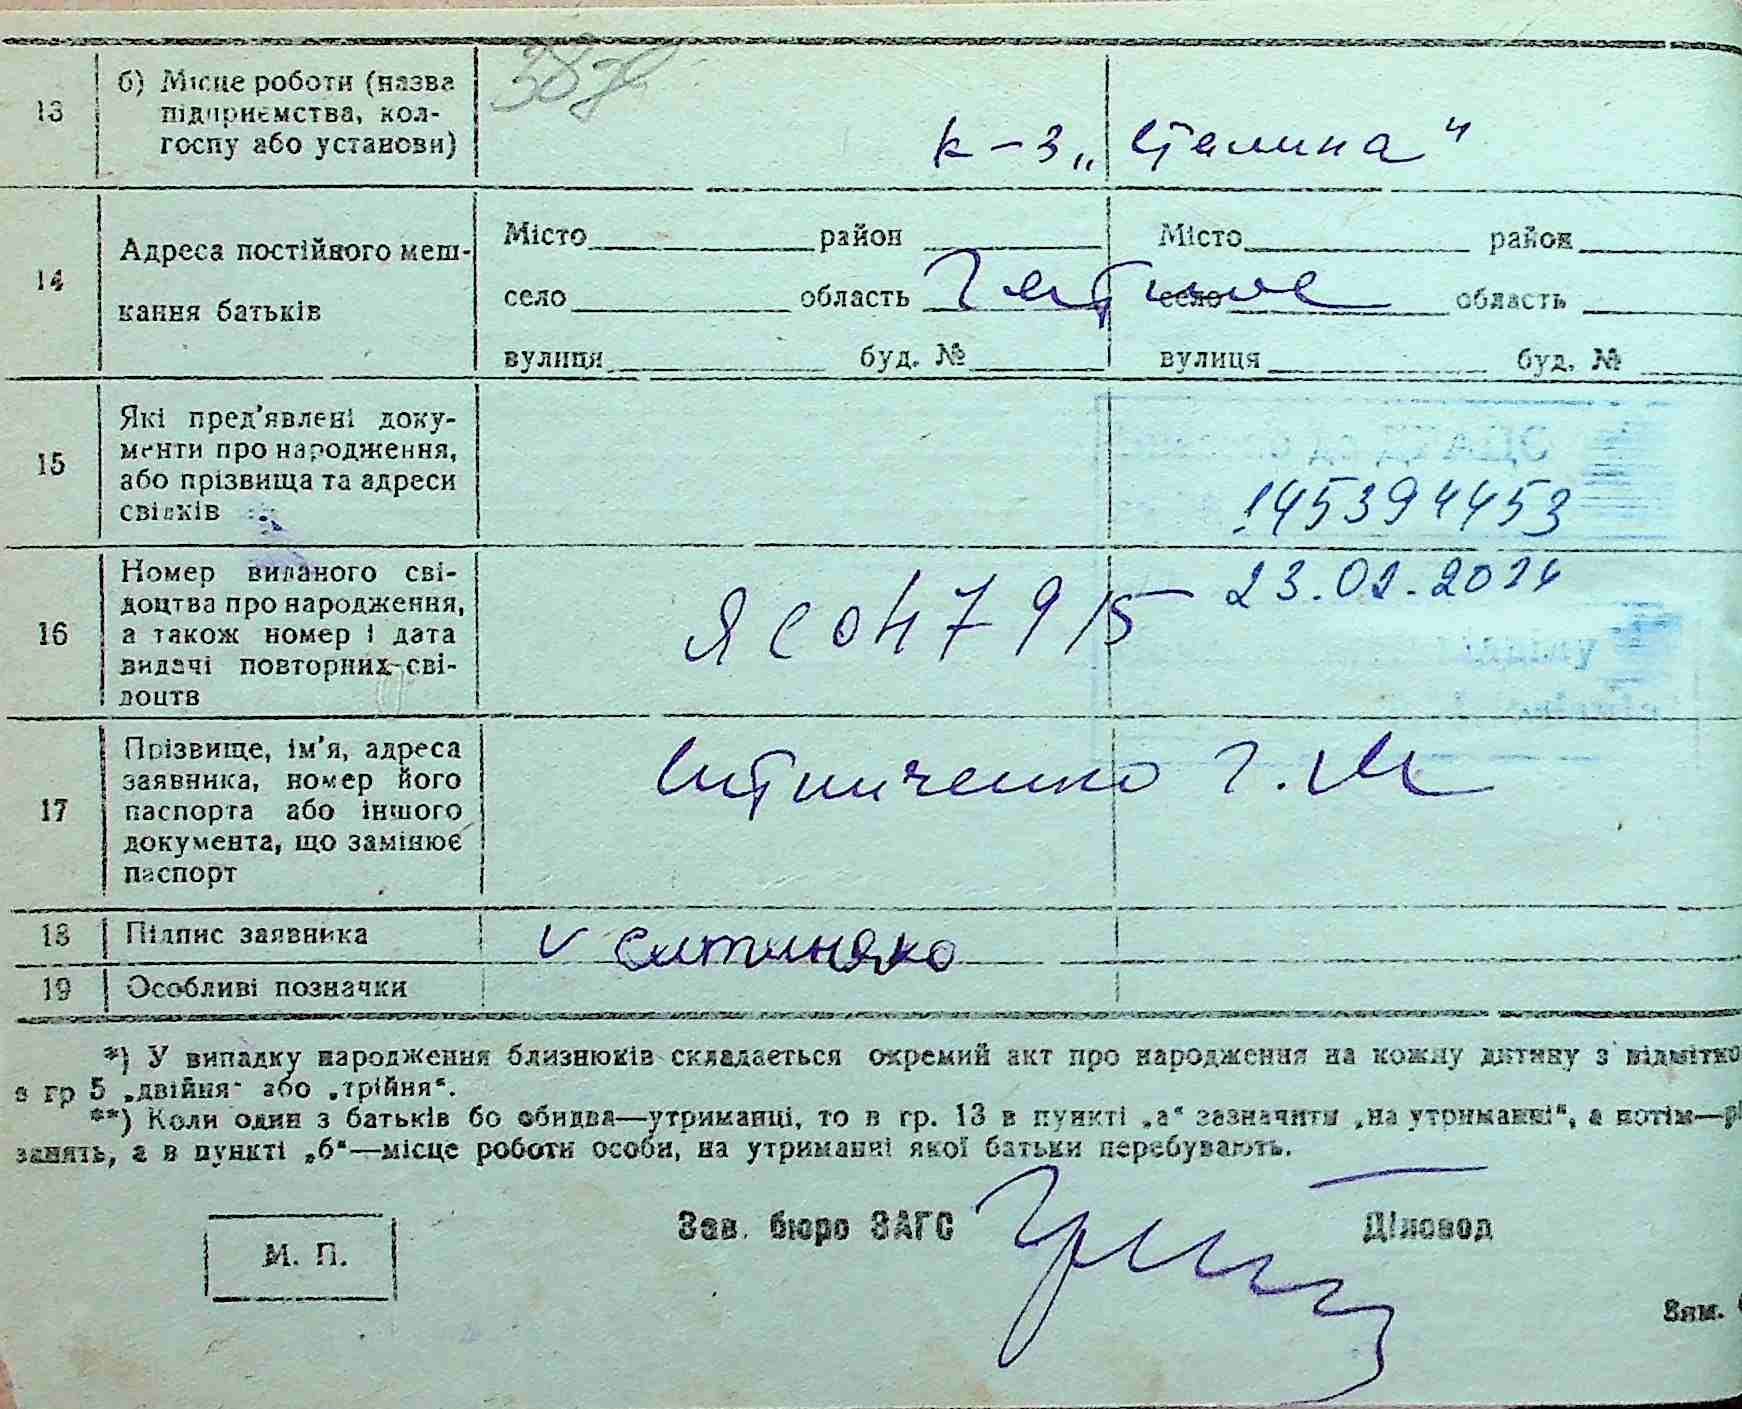 13
б) Місце роботи (назва
підприємства, кол-
госпу або установи)
к-з „Сталина"
14
Адреса постійного меш-
кання батьків
Місто район Місто район
село область село область
вулиця буд. № вулиця буд. №
15
Які пред'явлені доку-
менти про народження,
або прізвища та адреси
свідків
до ДРАЦС
145394453
16
Номер виданого сві-
доцтва про народження,
а також номер і дата
видачі повторних сві-
доцтв
23.02.2024
відділу
17
Прізвище, ім'я, адреса
заявника, номер його
паспорта або іншого
документа, що замінює
паспорт
18
Підпис заявника
19
Особливі позначки
*) У випадку народження близнюків складається окремий акт про народження на кожну дитину з відмітко
в гр 5 „двійня" або „трійня".
**) Коли один з батьків бо обидва—утриманці, то в гр. 13 в пункті „а" зазначити „на утриманні", а потім—р
занять, а в пункті „б"—місце роботи особи, на утриманні якої батьки перебувають.
Зав. бюро ЗАГС Діловод
М. П.
Зам.